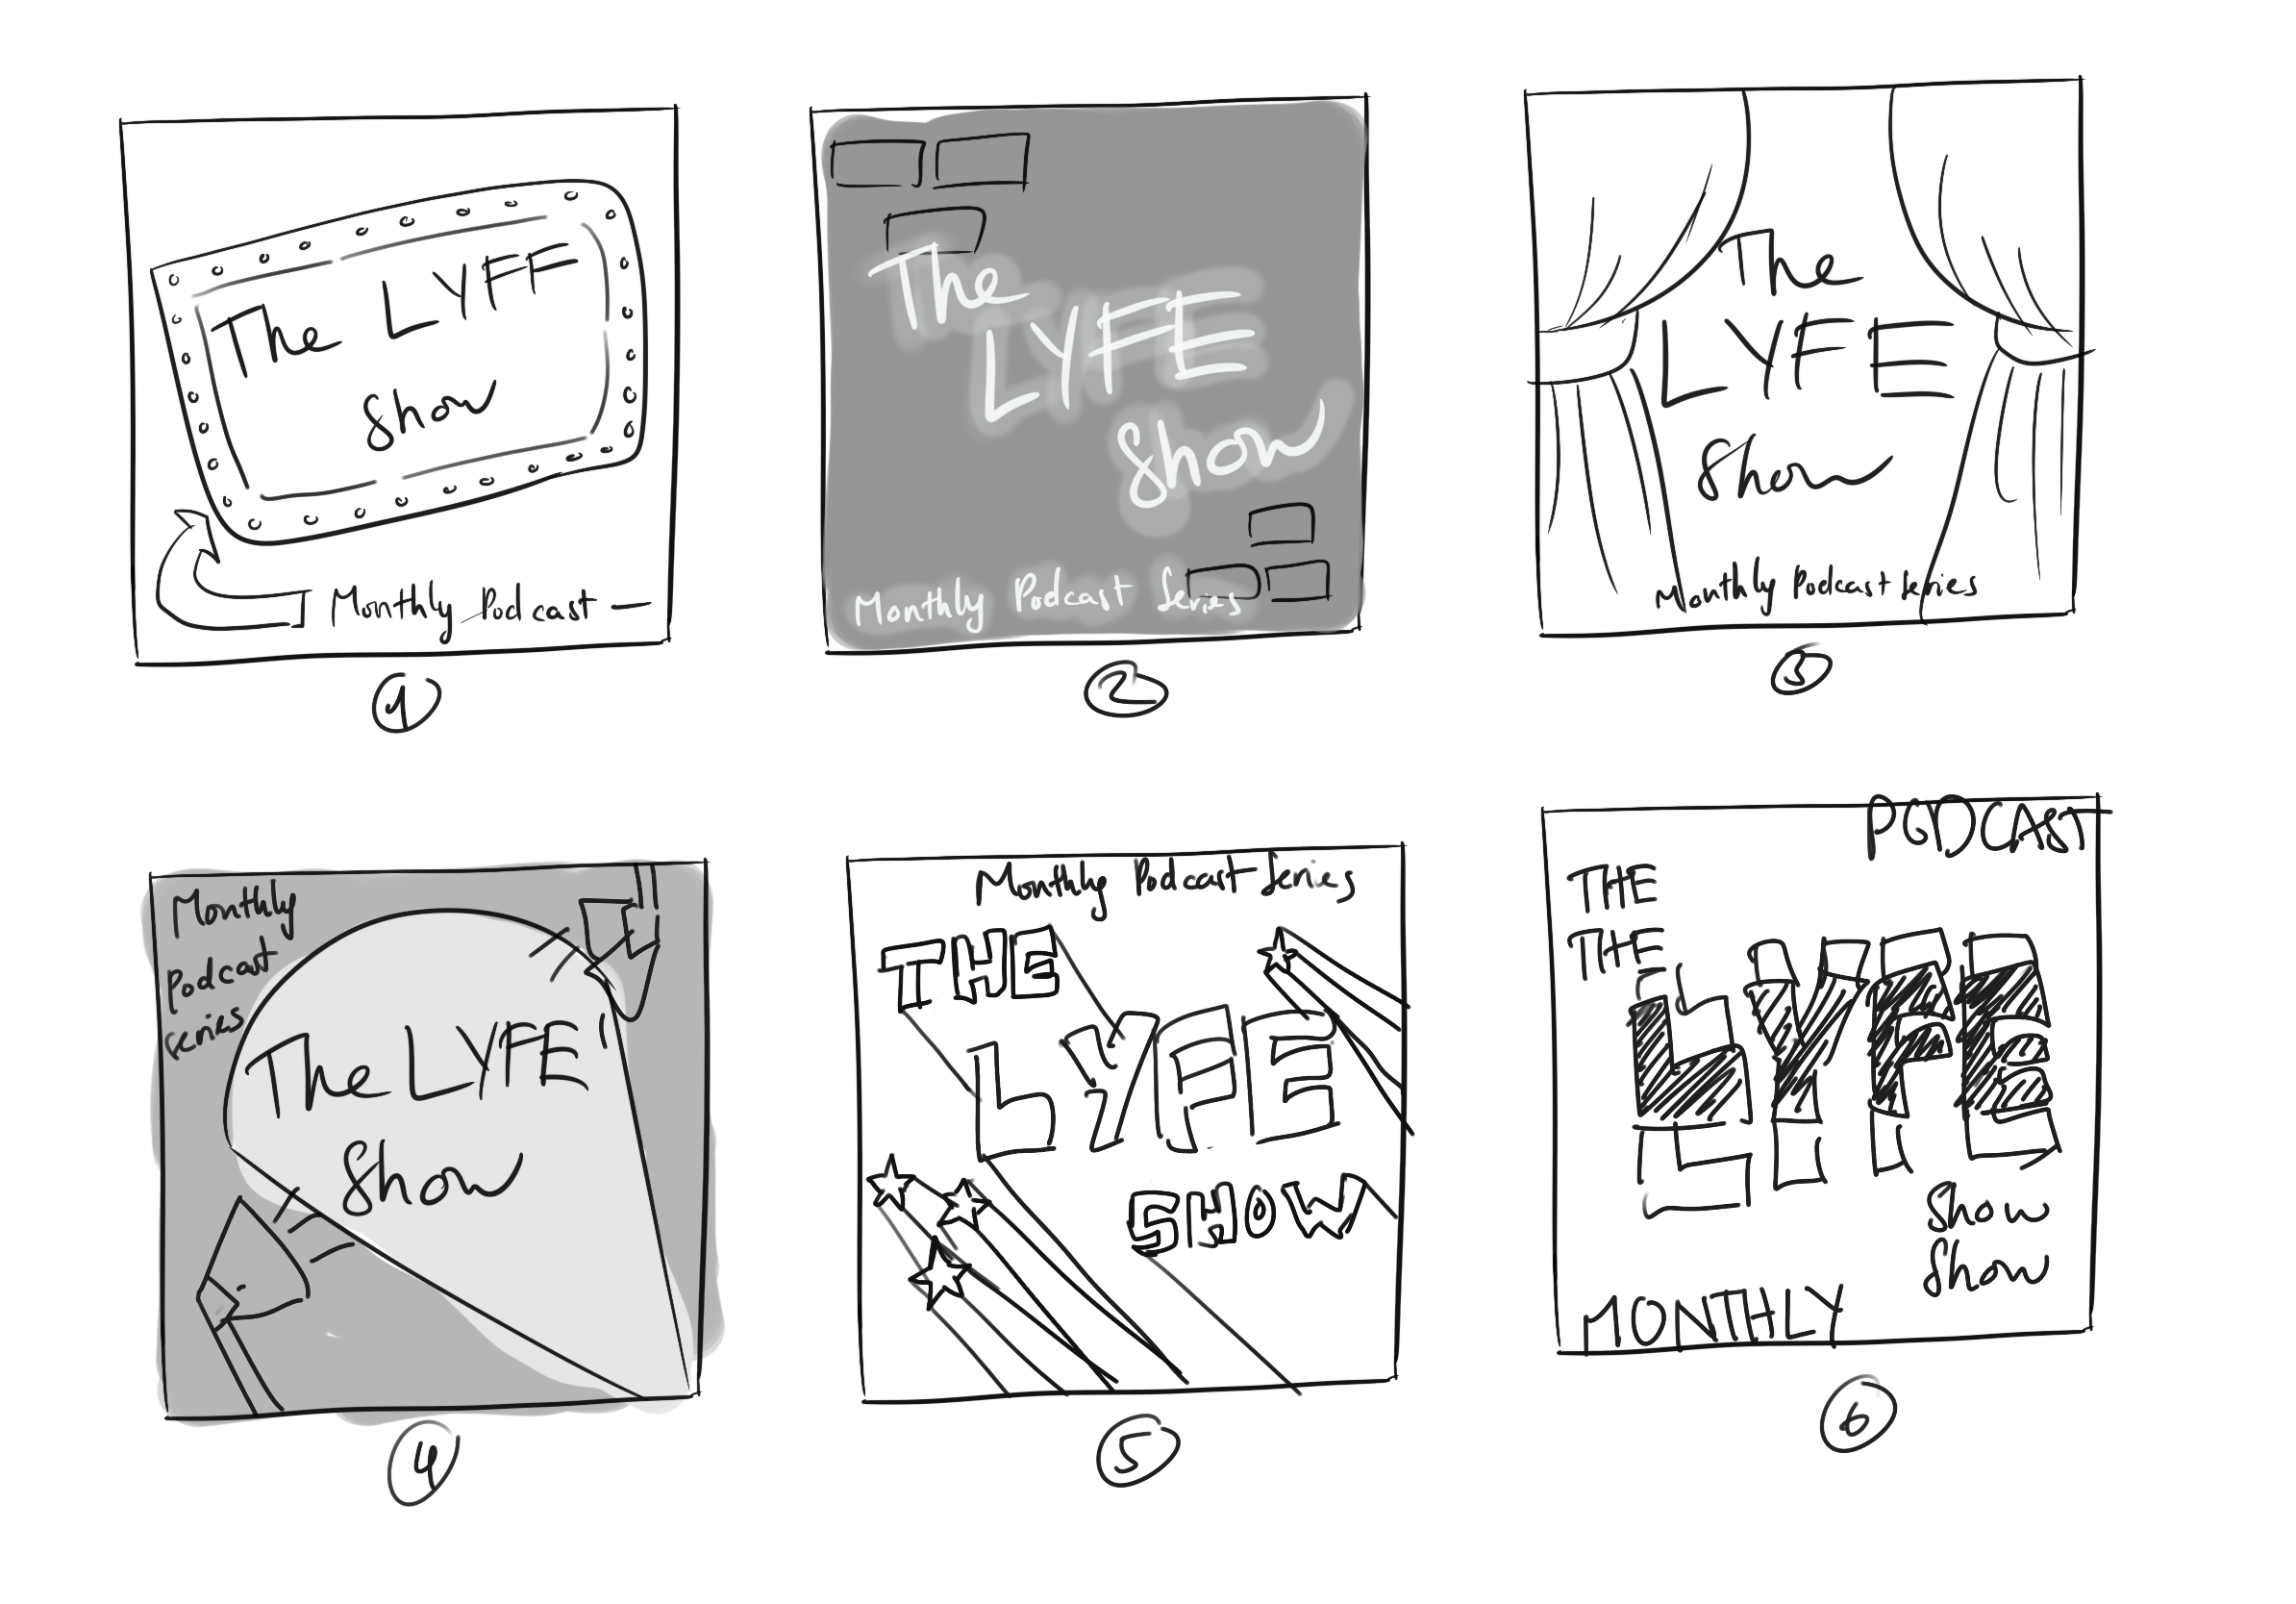 The LYFF
Show
Monthly Podcast —
1
The
LYFE
Show
Monthly Podcast Series
2
The
LYFE
Show
Monthly Podcast Series
3
Monthly
Podcast
Series
The LYFE
Show
4
Monthly Podcast Series
THE
LYFE
SHOW
5
PODCAST
THE
THE
LYFE
Show
Show
MONTHLY
6